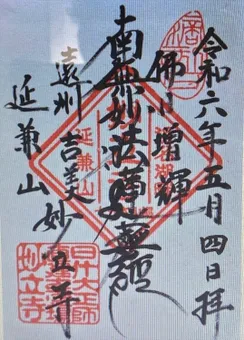 令和六年五月四日拝
佛日増輝
南無妙法蓮華経
遠州吉美妙立寺
延兼山
延兼山
妙立寺